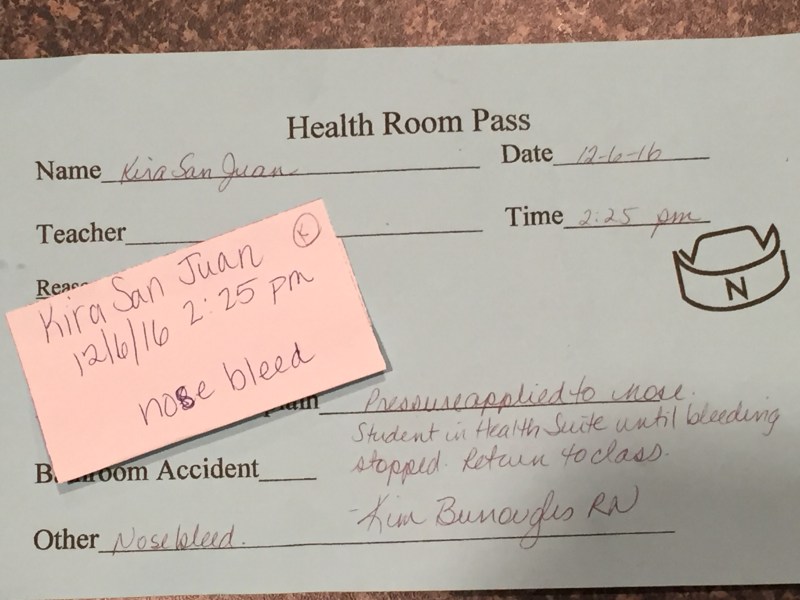 Health Room Pass
Name Kira San Juan
Date 12-6-16
Teacher
Time 2:25 pm
Reas
N
K
Kira San Juan
12/6/16 2:25 pm
nose bleed
plain Pressure applied to nose.
Student in Health Suite until bleeding
stopped. Return to class.
B room Accident
-Kim Burroughs RN
Other Nosebleed.